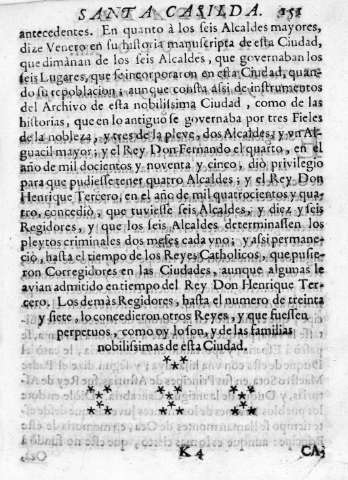 SANTA CASILDA. 151
antecedentes. En quanto à los seis Alcaldes mayores,
dize Venero en su historia manuscripta de esta Ciudad,
que dimanan de los seis Alcaldes, que governaban los
seis Lugares, que se incorporaron en esta Ciudad, quan-
do su repoblacion; aunque consta assi de instrumentos
del Archivo de esta nobilissima Ciudad, como de las
historias, que en lo antiguo se governaba por tres Fieles
de la nobleza, y tres de la pleve, dos Alcaldes, y vn Al-
guacil mayor; y el Rey Don Fernando el quarto, en el
año de mil docientos y noventa y cinco, diò privilegio
para que pudiesse tener quatro Alcaldes; y el Rey Don
Henrique Tercero, en el año de mil quatrocientos y qua-
tro, concediò, que tuviesse seis Alcaldes, y diez y seis
Regidores, y que los seis Alcaldes determinassen los
pleytos criminales dos meses cada vno; y assi permane-
ciò, hasta el tiempo de los Reyes Catholicos, que pusie-
ron Corregidores en las Ciudades, aunque algunas le
avian admitido en tiempo del Rey Don Henrique Ter-
cero. Los demàs Regidores, hasta el numero de treinta
y siete, lo concedieron otros Reyes, y que fuessen
perpetuos, como oy lo son, y de las familias
nobilissimas de esta Ciudad.
K 4 CA-